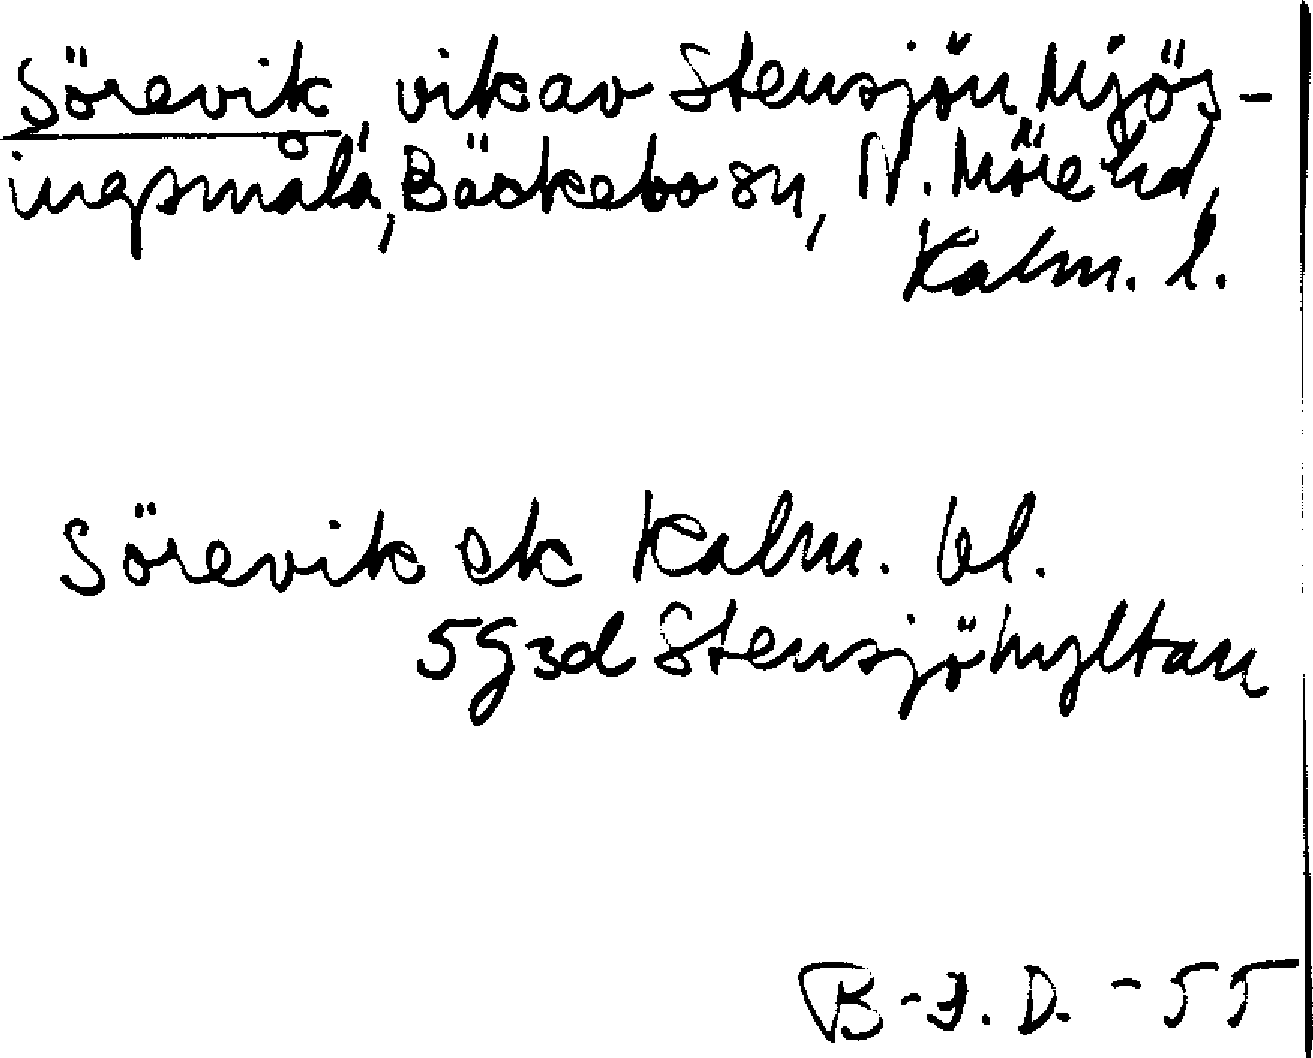 Sörevik, vik av Stensjön Mjös-
ingsmåla, Bäckebo sn, N. Möre hd,
Kalm. l.
Sörevik ek Kalm. bl.
5G3d Stensjöhyltan
B-J. D. -55